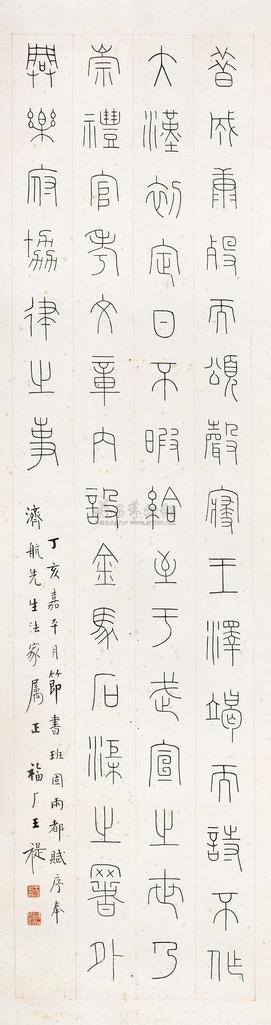 昔成康歿而頌聲寑王澤竭而詩不作
大漢初定日不暇給至于武宣之世乃
崇禮官考文章內設金馬石渠之署外
興樂府協律之事
丁亥嘉平月節書班固兩都賦序奉
濟航先生法家属正 福厂王禔